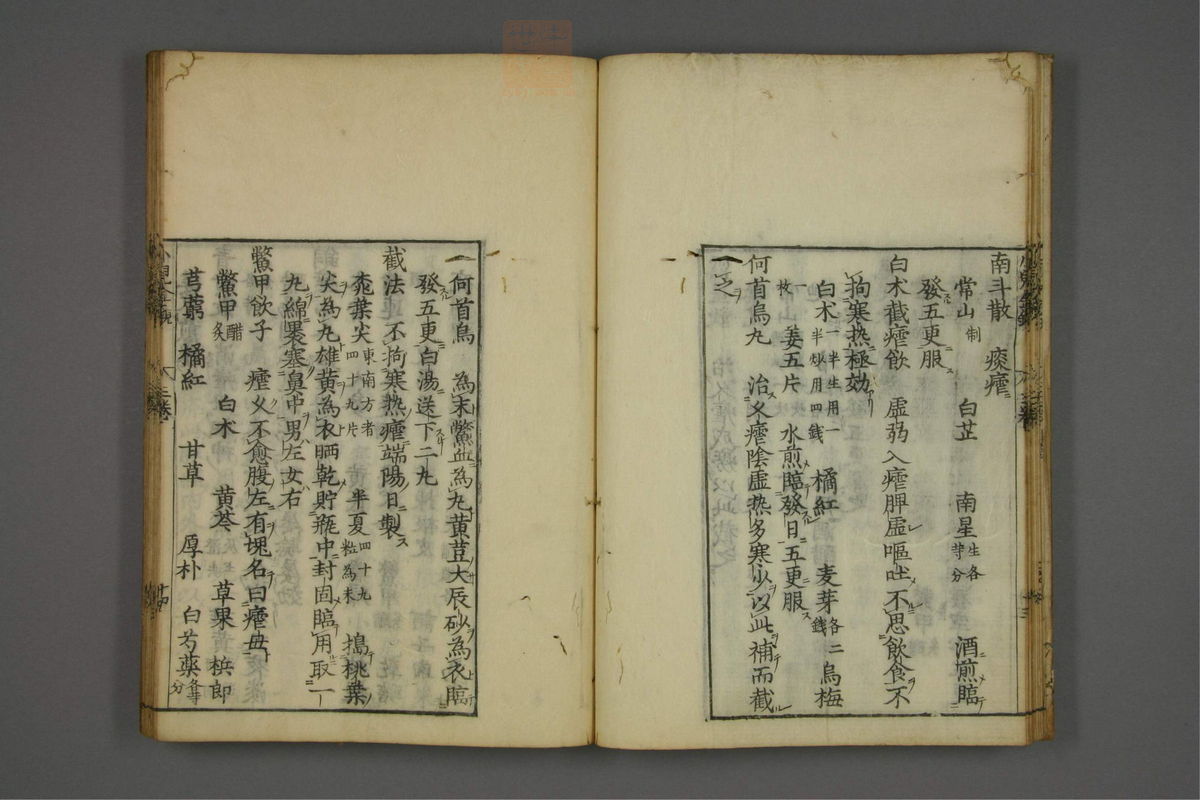 南斗散 痰瘧
常山制 白芷 南星生各等分 酒煎臨
發五更服
白朮截瘧飲 虛弱入瘧脾虛嘔吐不思飲食不
拘寒热極効
白朮一半生用一半炒用四錢 橘紅 麦芽各二錢 烏梅
一枚 姜五片 水煎臨發日五更服
何首烏丸 治久瘧陰虛热多寒少以此補而截
之
何首烏 為末鱉血為丸黄荳大辰砂為衣臨
發五更白湯送下二丸
截法 不拘寒热瘧端陽日製
桃葉尖東南方者四十九片 半夏四十九粒為末 搗桃葉
尖為丸雄黄為衣晒乾貯瓶中封固臨用取一
丸綿裹塞鼻中男左女右
鱉甲飲子 瘧久不愈腹左有塊名曰瘧母
鱉甲醋炙 白朮 黄芩 草果 梹郎
芎藭 橘紅 甘草 厚朴 白芍藥各等分